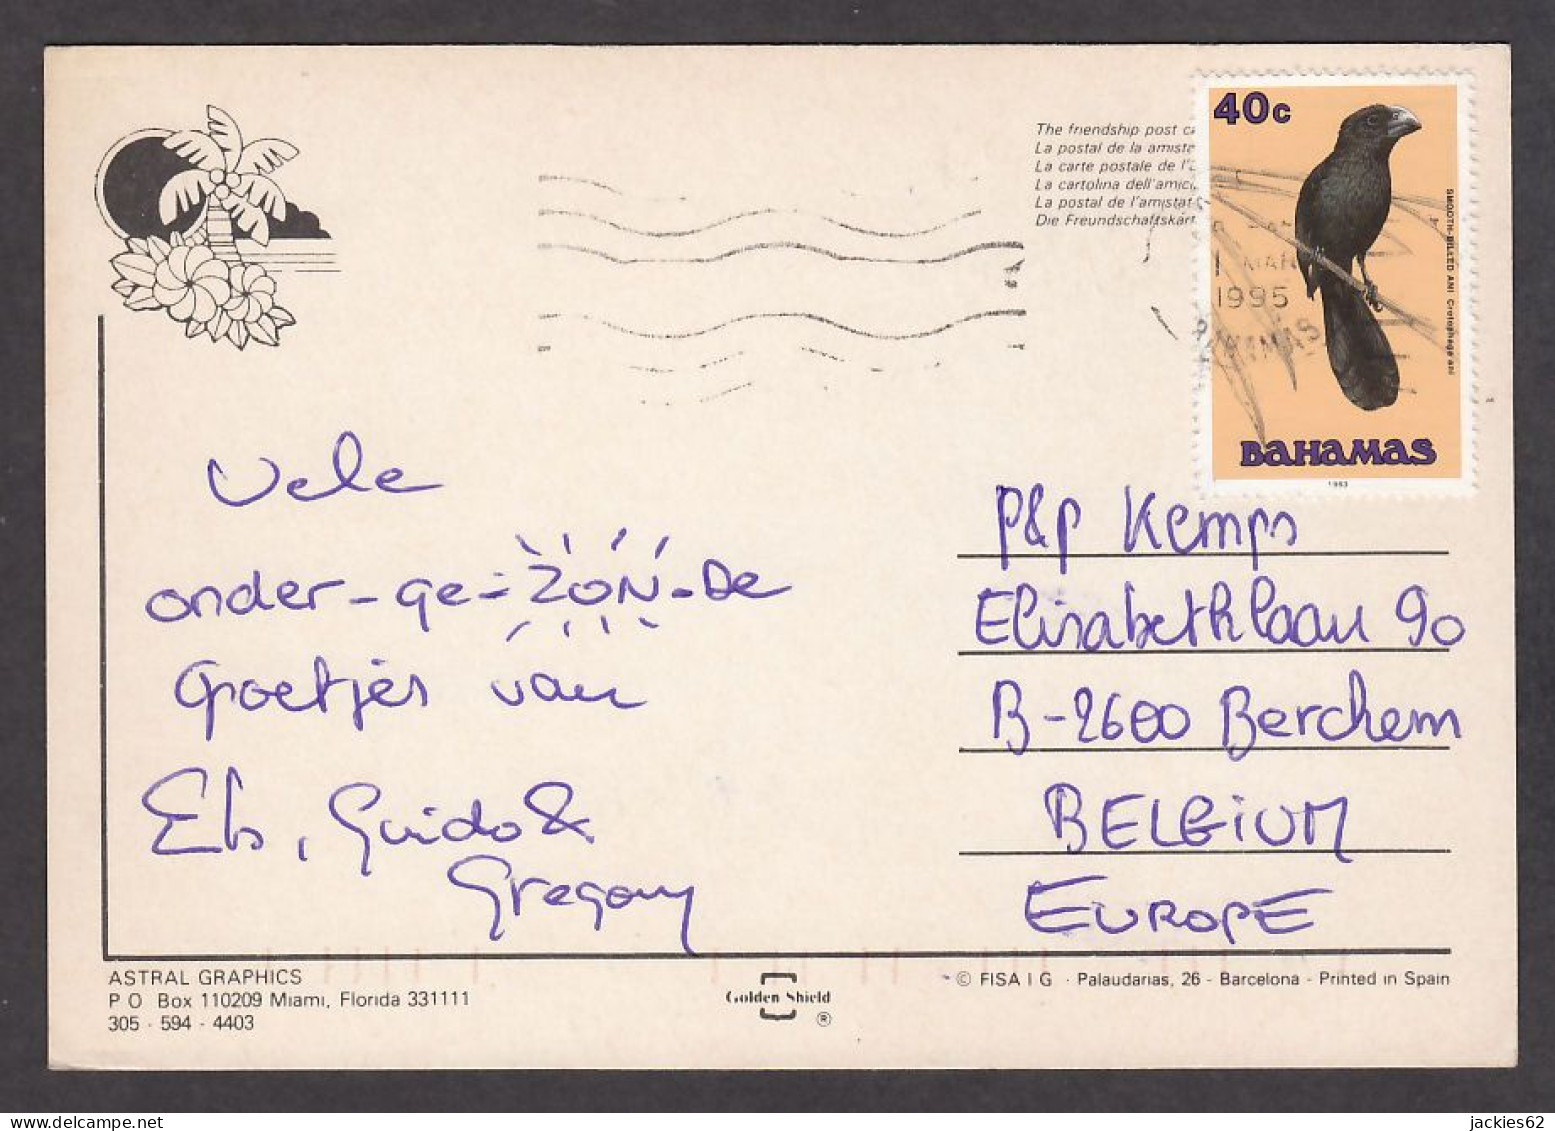 The friendship post
La postal de la
La carte postale de
La cartolina
La postal de
Die
40c
SMOOTH-BILLED ANI Crotophaga ani
1 MAR
1995
BAHAMAS
BAHAMAS
1993
Vele
onder-ge-ZON-De
Groetjes van
Els, Guido &
Gregory
P&P Kemps
Elisabethlaan 90
B-2600 Berchem
BELGIUM
EUROPE
ASTRAL GRAPHICS
P O Box 110209 Miami, Florida 331111
305 - 594 - 4403
Golden Shield
®
© FISA I G · Palaudarias, 26 - Barcelona - Printed in Spain
jackies62